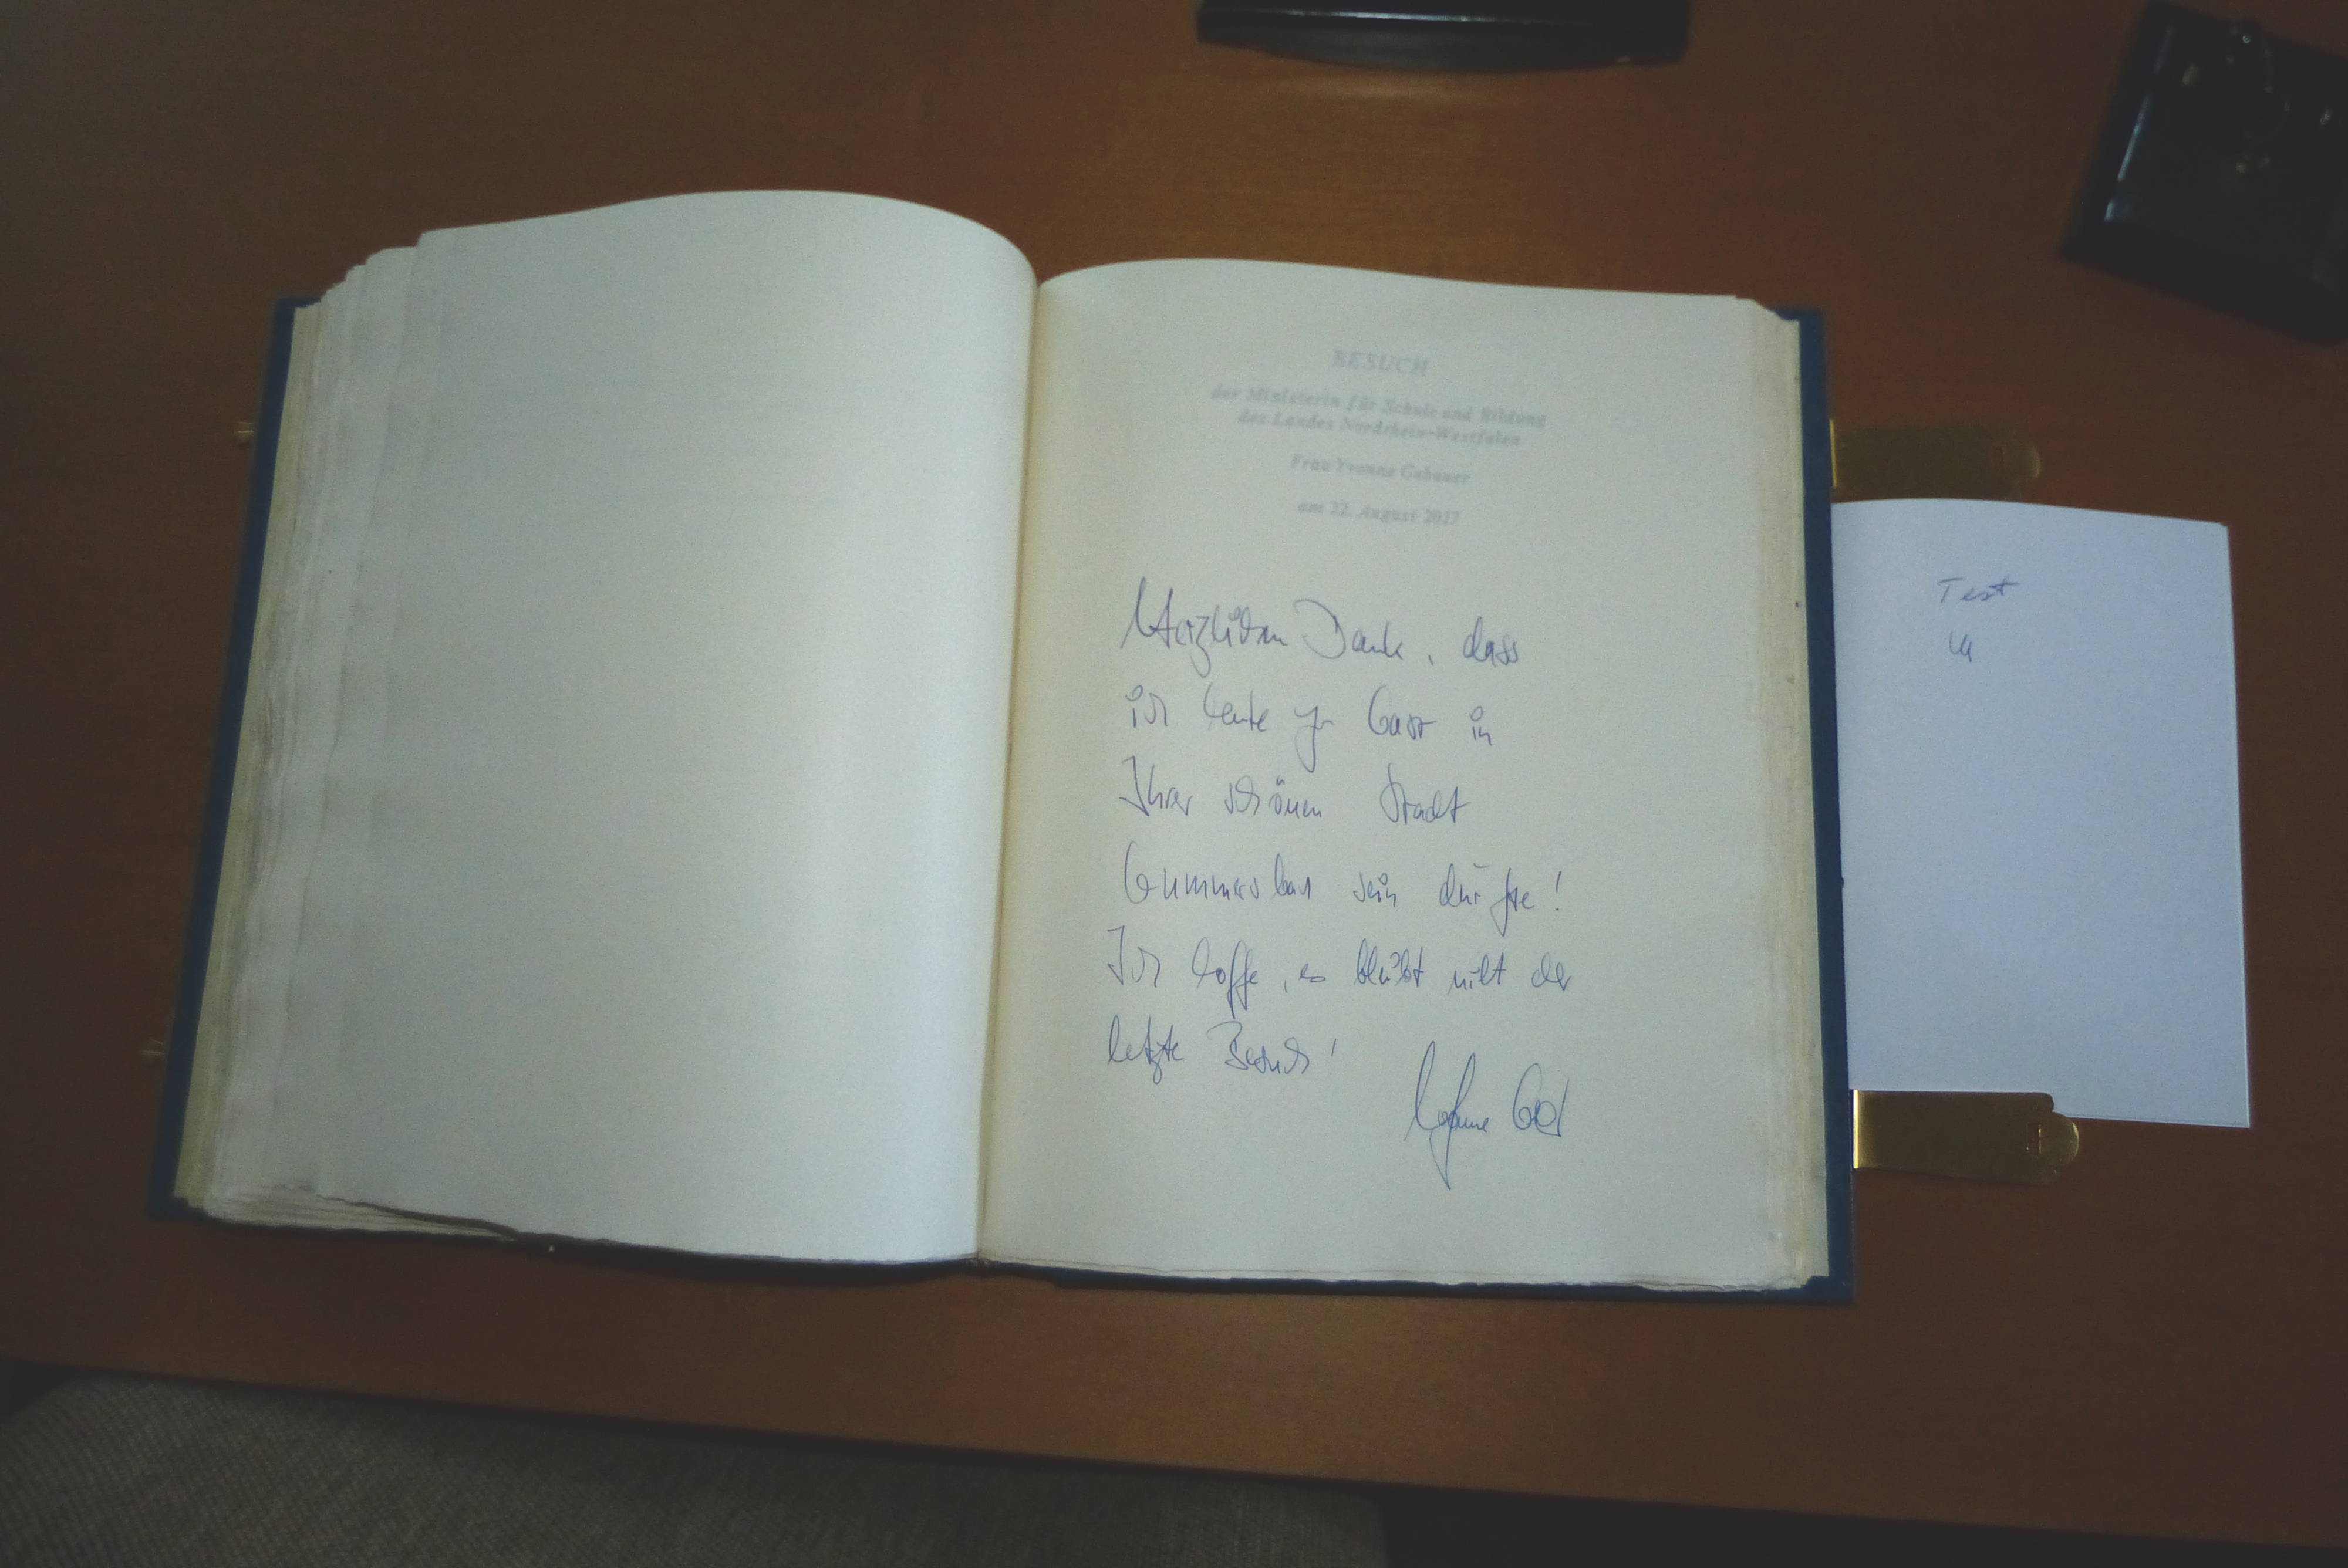 BESUCH
der Ministerin für Schule und Bildung
des Landes Nordrhein-Westfalen
Frau Yvonne Gebauer
am 22. August 2017
Herzlichen Dank, dass
ich heute zu Gast in
Ihrer schönen Stadt
Gummersbach sein durfte!
Ich hoffe, es bleibt nicht der
letzte Besuch!
Test